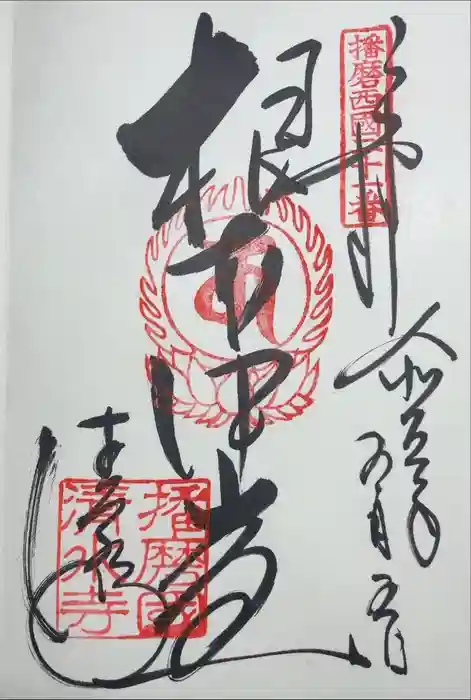 播磨西國二十一番
奉拝
令和五年
五月五日
根本中堂
清水寺
播磨國
清水寺